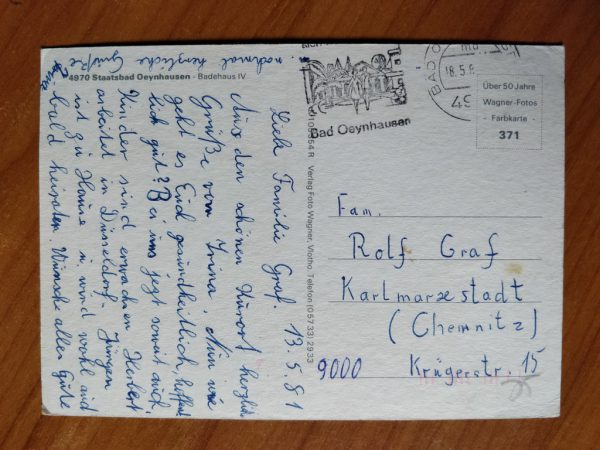 4970 Staatsbad Oeynhausen - Badehaus IV
Liebe Familie Graf. 13.5.81
Aus den schönen Kurort herzliche
Grüße von Irina. Nun wie
geht es Euch gesundheitlich, hoffentl.
lich gut? Bei uns jezt soweit auch.
Kinder sind erwachsen Herbert
arbeitet in Düsseldorf. Jürgen
ist zu Hause u. wird wohl auch
bald heiraten. Wünsche alles Gute
nochmal herzliche Grüße
Verlag Foto Wagner, Vlotho, Telefon (05733) 2933
Bad Oeynhausen
BAD O
18.5.8
49
Über 50 Jahre
Wagner-Fotos
- Farbkarte -
371
Fam.
Rolf Graf
Karlmarxestadt
(Chemnitz)
9000 Krügerstr. 15